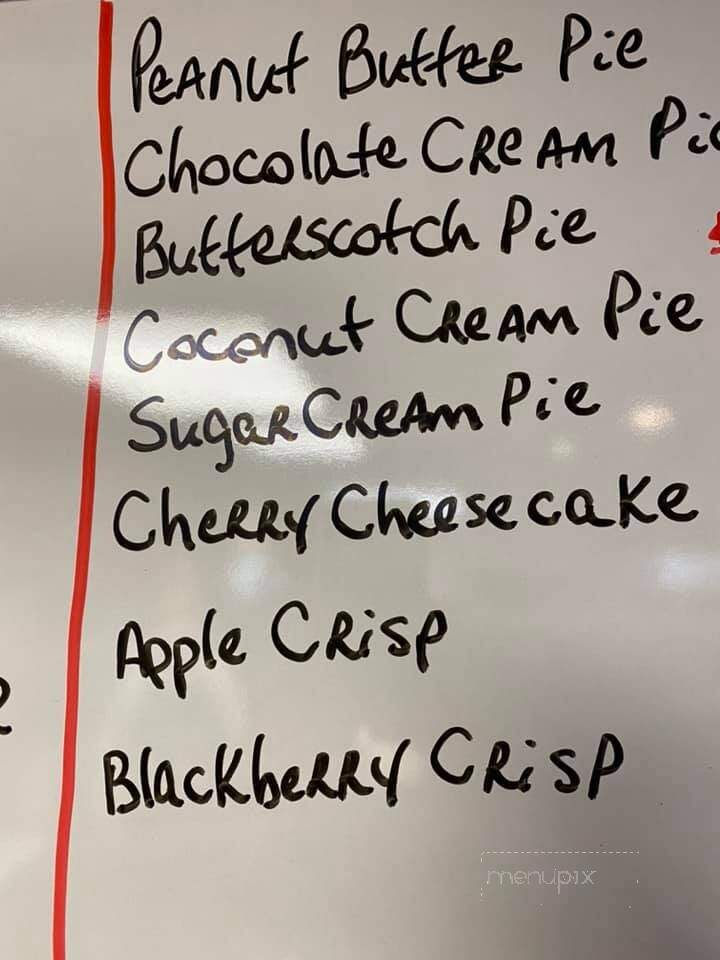 Peanut Butter Pie
Chocolate Cream Pie
Butterscotch Pie
Coconut Cream Pie
Sugar Cream Pie
Cherry Cheesecake
Apple Crisp
Blackberry Crisp
menupix